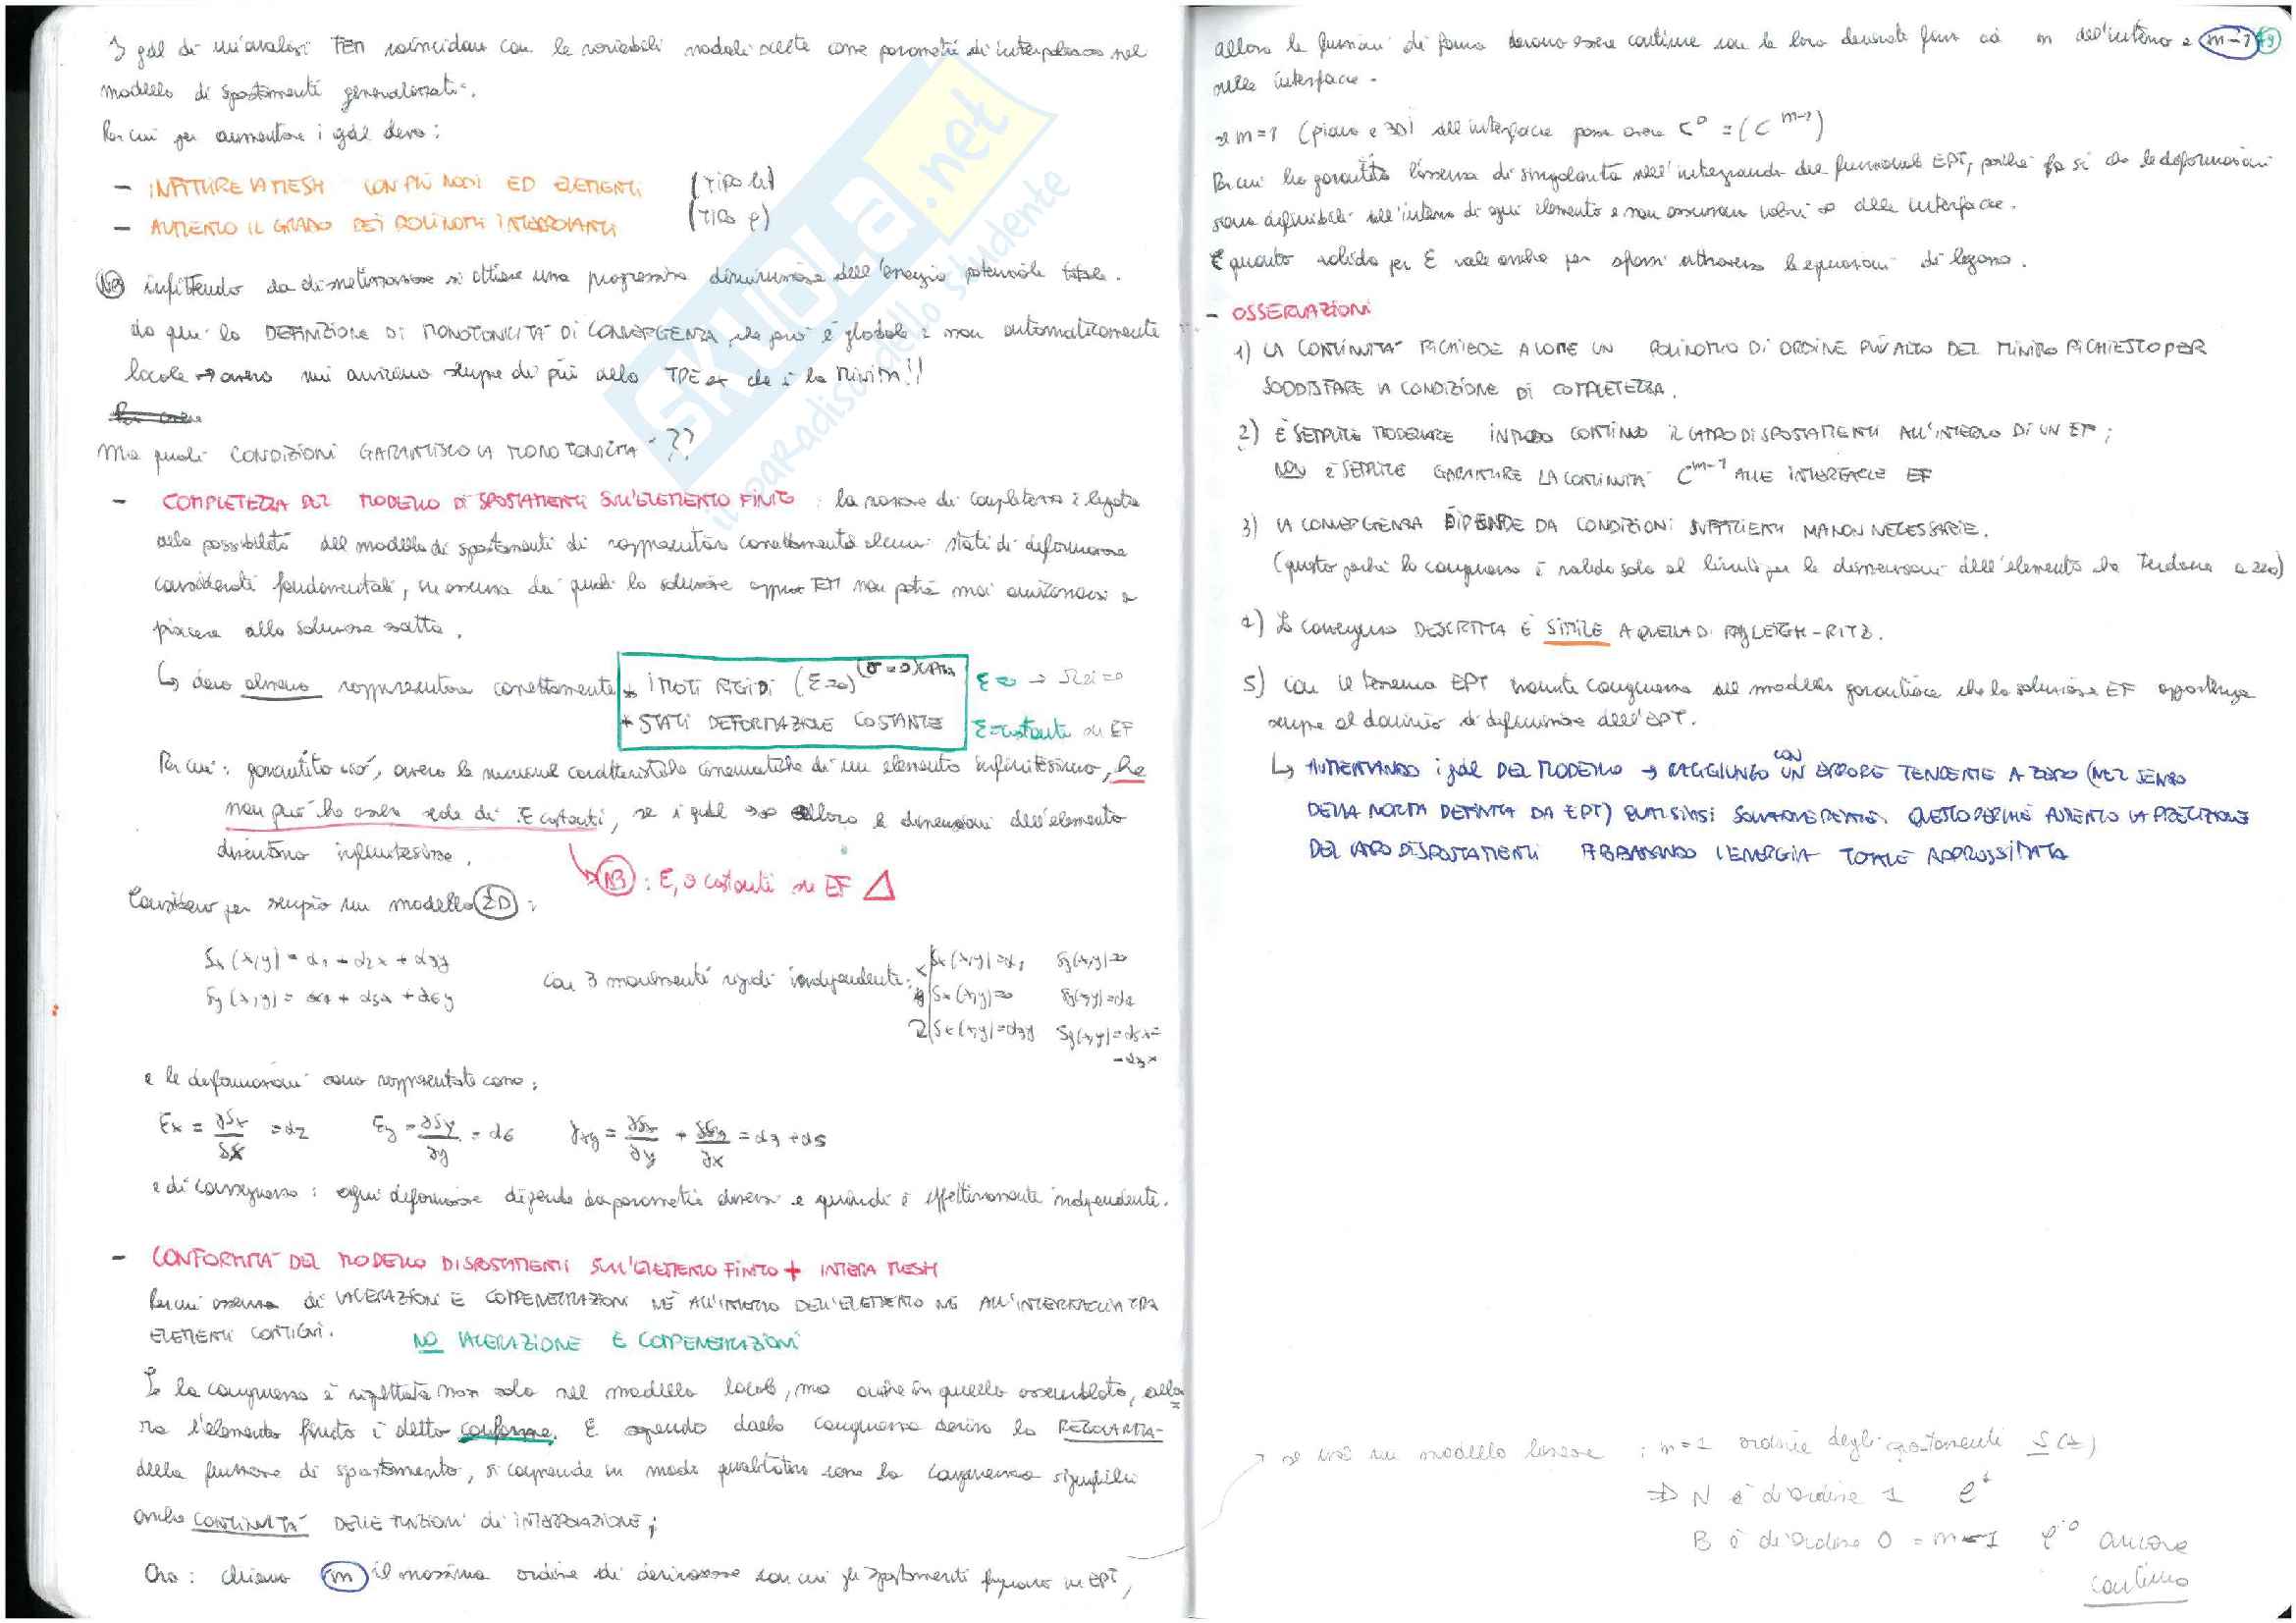 I gdl di un'analisi FEM coincidono con le variabili nodali scelte come parametri di interpolazione nel
modello di spostamenti generalizzati.
Per cui per aumentare i gdl devo:
- INFITTIRE LA MESH CON PIÙ NODI ED ELEMENTI (TIPO h)
- AUMENTO IL GRADO DEI POLINOMI INTERPOLANTI (TIPO p)
NB infittendo la discretizzazione si ottiene una progressiva diminuzione dell'energia potenziale totale.
da qui la DEFINIZIONE DI MONOTONICITÀ DI CONVERGENZA che però è globale e non automaticamente
locale → ovvero mi avvicino sempre di più alla TPE ex che è la MINIMA!!
Ma quali CONDIZIONI GARANTISCO LA MONOTONICITÀ ??
- COMPLETEZZA DEL MODELLO DI SPOSTAMENTI SULL'ELEMENTO FINITO: la nozione di completezza è legata
alla possibilità del modello di spostamenti di rappresentare correttamente alcuni stati di deformazione
considerati fondamentali, in assenza dei quali la soluzione appross FEM non potrà mai avvicinarsi a
piacere alla soluzione esatta.
↳ devo almeno rappresentare correttamente * I MOTI RIGIDI (ε=0) (σ=0) ε=0 →
* STATI DEFORMAZIONE COSTANTE ε=costante su EF
Per cui: garantito ciò, ovvero le minime caratteristiche cinematiche di un elemento infinitesimo, che
non può che essere sede di ε costanti, se i gdl →∞ allora le dimensioni dell'elemento
diventano infinitesime.
NB: ε, σ costanti su EF △
Considero per esempio un modello 2D:
Sx(x,y) = α1 + α2x + α3y
Sy(x,y) = α4 + α5x + α6y
con 3 movimenti rigidi indipendenti:
x Sx(x,y)=α1 Sy(x,y)=0
y Sx(x,y)=0 Sy(x,y)=α4
2 Sx(x,y)=α3y Sy(x,y)=α5x=
-α3x
e le deformazioni sono rappresentate come:
εx = ∂Sx/∂x = α2 εy = ∂Sy/∂y = α6 γxy = ∂Sx/∂y + ∂Sy/∂x = α3 + α5
e di conseguenza: ogni deformazione dipende da parametri diversi e quindi è effettivamente indipendente.
- CONFORMITÀ DEL MODELLO DI SPOSTAMENTI SULL'ELEMENTO FINITO + INTERA MESH
Per cui assenza di LACERAZIONI E COMPENETRAZIONI NÉ ALL'INTERNO DELL'ELEMENTO NÉ ALL'INTERFACCIA TRA
ELEMENTI CONTIGUI. NO LACERAZIONE E COMPENETRAZIONI
Se la congruenza è rispettata non solo nel modello locale, ma anche in quello assemblato, allo
ra l'elemento finito è detto conforme. E essendo dalla congruenza deriva la REGOLARITÀ
della funzione di spostamento, si comprende in modo qualitativo come la congruenza significhi
anche CONTINUITÀ DELLE FUNZIONI di INTERPOLAZIONE;
Ora: chiamo m il massimo ordine di derivazione con cui gli spostamenti figurano in EPT,
allora le funzioni di forma devono essere continue con le loro derivate fino ad m all'interno e m-1
nelle interfacce.
se m=1 (piano e 3D) all'interfacce posso avere C⁰ = (C^m-1)
Per cui ho garantito l'assenza di singolarità nell'integranda del funzionale EPT, poiché fa sì che le deformazioni
siano definibili all'interno di ogni elemento e non assumano valori ∞ alle interfacce.
E quanto valido per ε vale anche per sforzi attraverso le equazioni di legame.
- OSSERVAZIONI
1) LA CONTINUITÀ RICHIEDE A VOLTE UN POLINOMIO DI ORDINE PIÙ ALTO DEL MINIMO RICHIESTO PER
SODDISFARE LA CONDIZIONE DI COMPLETEZZA.
2) È SEMPLICE MODELLARE IN MODO CONTINUO IL CAMPO DI SPOSTAMENTI ALL'INTERNO DI UN EF;
NON È SEMPLICE GARANTIRE LA CONTINUITÀ C^m-1 ALLE INTERFACCE EF
3) LA CONVERGENZA DIPENDE DA CONDIZIONI SUFFICIENTI MA NON NECESSARIE.
(questo perché la congruenza è valida solo al limite per le dimensioni dell'elemento che tendono a zero)
4) La convergenza DESCRITTA È SIMILE A QUELLA DI RAYLEIGH-RITZ.
5) con il teorema EPT tramite congruenza del modello garantisce che la soluzione EF appartenga
sempre al dominio di definizione dell'EPT.
↳ AUMENTANDO i gdl DEL MODELLO → RAGGIUNGO CON UN ERRORE TENDENTE A ZERO (NEL SENSO
DELLA NORMA DEFINITA DA EPT) QUALSIASI SOLUZIONE QUESTO PERCHÉ AUMENTO LA PRECISIONE
DEL CAMPO DI SPOSTAMENTI ABBASSANDO L'ENERGIA TOTALE APPROSSIMATA
→ se uso un modello lineare : m=1 ordine degli spostamenti S(x)
⇒ N è di ordine 1 C¹
B è di ordine 0 = m-1 C⁰ ancora
continuo
SKUOLA.net
il paradiso dello studente